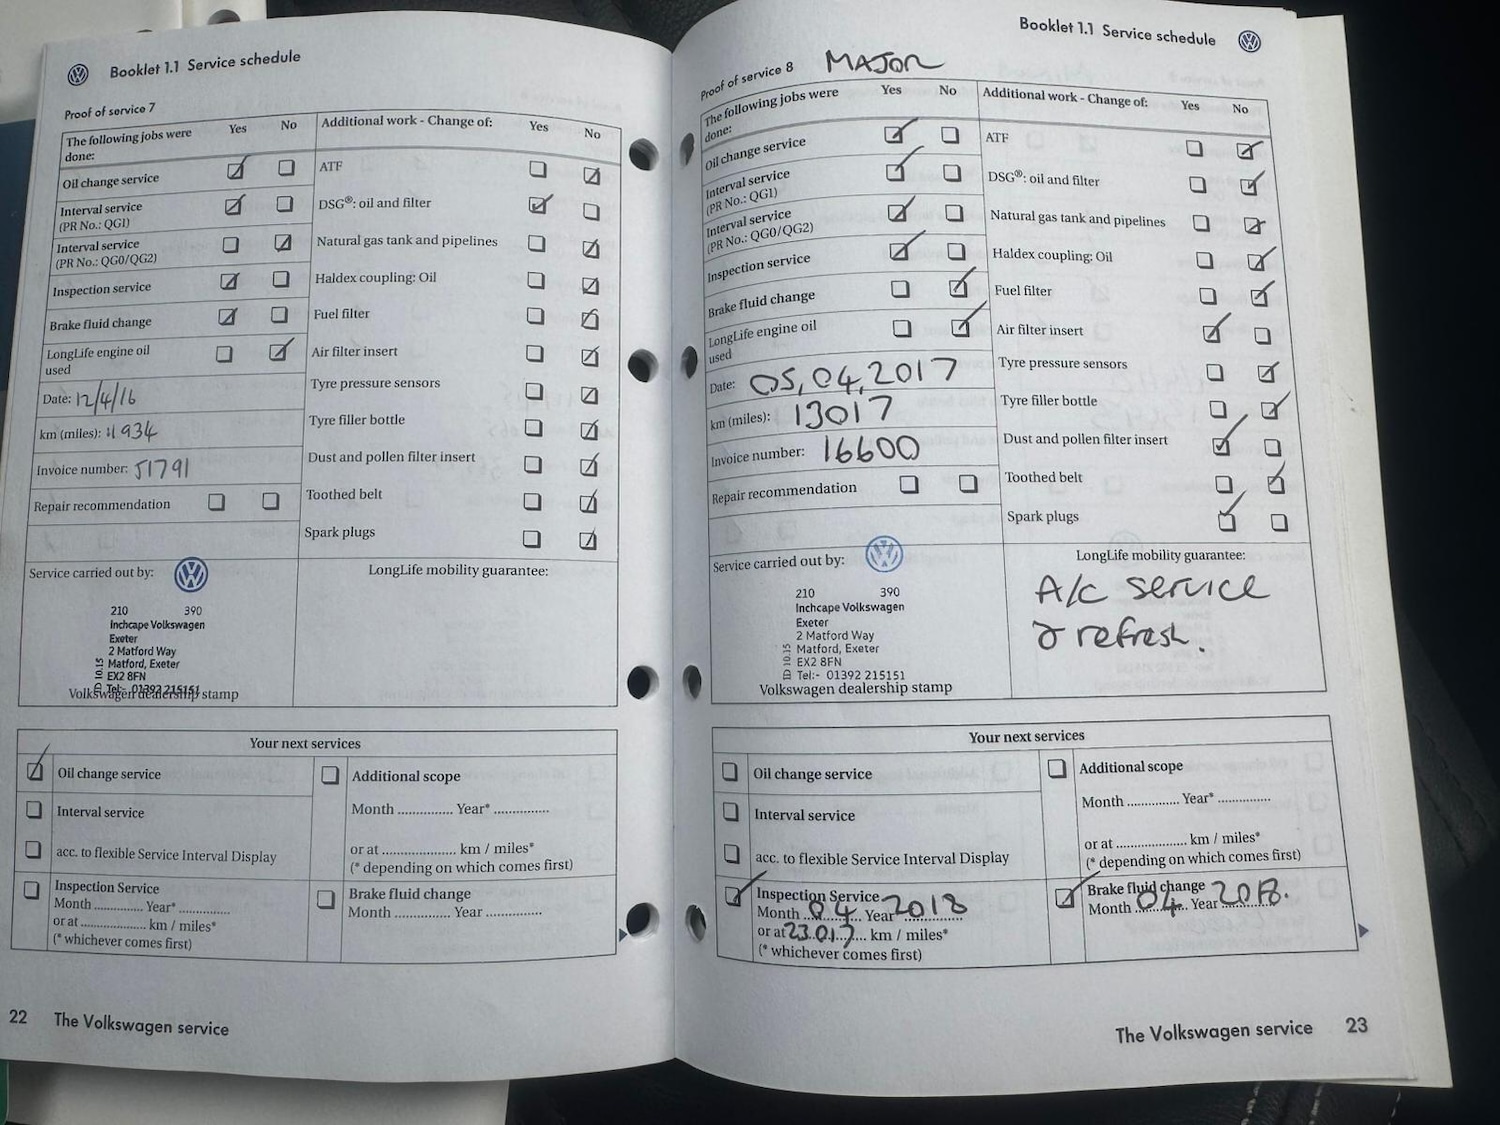 Booklet 1.1 Service schedule
Proof of service 7
The following jobs were done: Yes No
Oil change service
Interval service
(PR No.: QG1)
Interval service
(PR No.: QG0/QG2)
Inspection service
Brake fluid change
LongLife engine oil
used
Date: 12/4/16
km (miles): 11934
Invoice number: 51791
Repair recommendation
Additional work - Change of: Yes No
ATF
DSG®: oil and filter
Natural gas tank and pipelines
Haldex coupling: Oil
Fuel filter
Air filter insert
Tyre pressure sensors
Tyre filler bottle
Dust and pollen filter insert
Toothed belt
Spark plugs
Service carried out by:
210 390
Inchcape Volkswagen
Exeter
2 Matford Way
Matford, Exeter
EX2 8FN
Tel:- 01392 215151
ID 10.15
Volkswagen dealership stamp
LongLife mobility guarantee:
Your next services
Oil change service
Interval service
acc. to flexible Service Interval Display
Inspection Service
Month .............. Year* ..............
or at ................... km / miles*
(* whichever comes first)
Additional scope
Month ............... Year* ...............
or at ..................... km / miles*
(* depending on which comes first)
Brake fluid change
Month ............... Year ...............
22 The Volkswagen service
Booklet 1.1 Service schedule
Proof of service 8 MAJOR
The following jobs were done: Yes No
Oil change service
Interval service
(PR No.: QG1)
Interval service
(PR No.: QG0/QG2)
Inspection service
Brake fluid change
LongLife engine oil
used
Date: 05,04,2017
km (miles): 13017
Invoice number: 16600
Repair recommendation
Additional work - Change of: Yes No
ATF
DSG®: oil and filter
Natural gas tank and pipelines
Haldex coupling: Oil
Fuel filter
Air filter insert
Tyre pressure sensors
Tyre filler bottle
Dust and pollen filter insert
Toothed belt
Spark plugs
Service carried out by:
210 390
Inchcape Volkswagen
Exeter
2 Matford Way
Matford, Exeter
EX2 8FN
Tel:- 01392 215151
ID 10.15
Volkswagen dealership stamp
LongLife mobility guarantee:
A/c service
& refresh.
Your next services
Oil change service
Interval service
acc. to flexible Service Interval Display
Inspection Service
Month 04 Year* 2018
or at 23017 km / miles*
(* whichever comes first)
Additional scope
Month .............. Year* ...............
or at .................... km / miles*
(* depending on which comes first)
Brake fluid change
Month 04 Year 2018.
The Volkswagen service 23